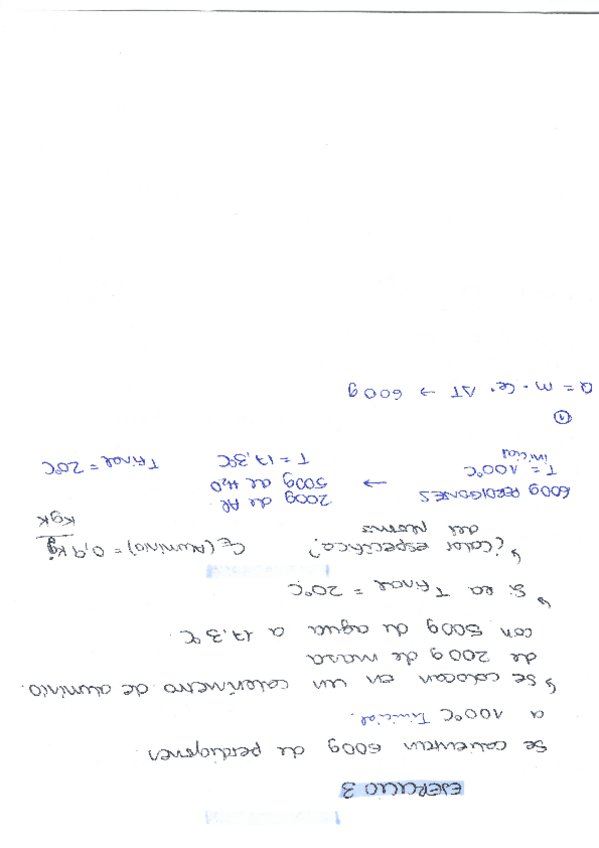 EJERCICIO 3
Se calientan 600g de perdigones
a 100ºC Tinicial.
↳ Se colocan en un calorímetro de aluminio.
de 200g de masa
con 500g de agua a 17,3ºC.
↳ Si la Tfinal = 20ºC
↳ ¿Calor específico? Ce (Aluminio) = 0,9 kj / kgK
del plomo
600g PERDIGONES → 200g de Al.
500g de H2O
T = 100ºC T = 17,3ºC Tfinal = 20ºC
inicial
①
Q = m · Ce · ΔT → 600g